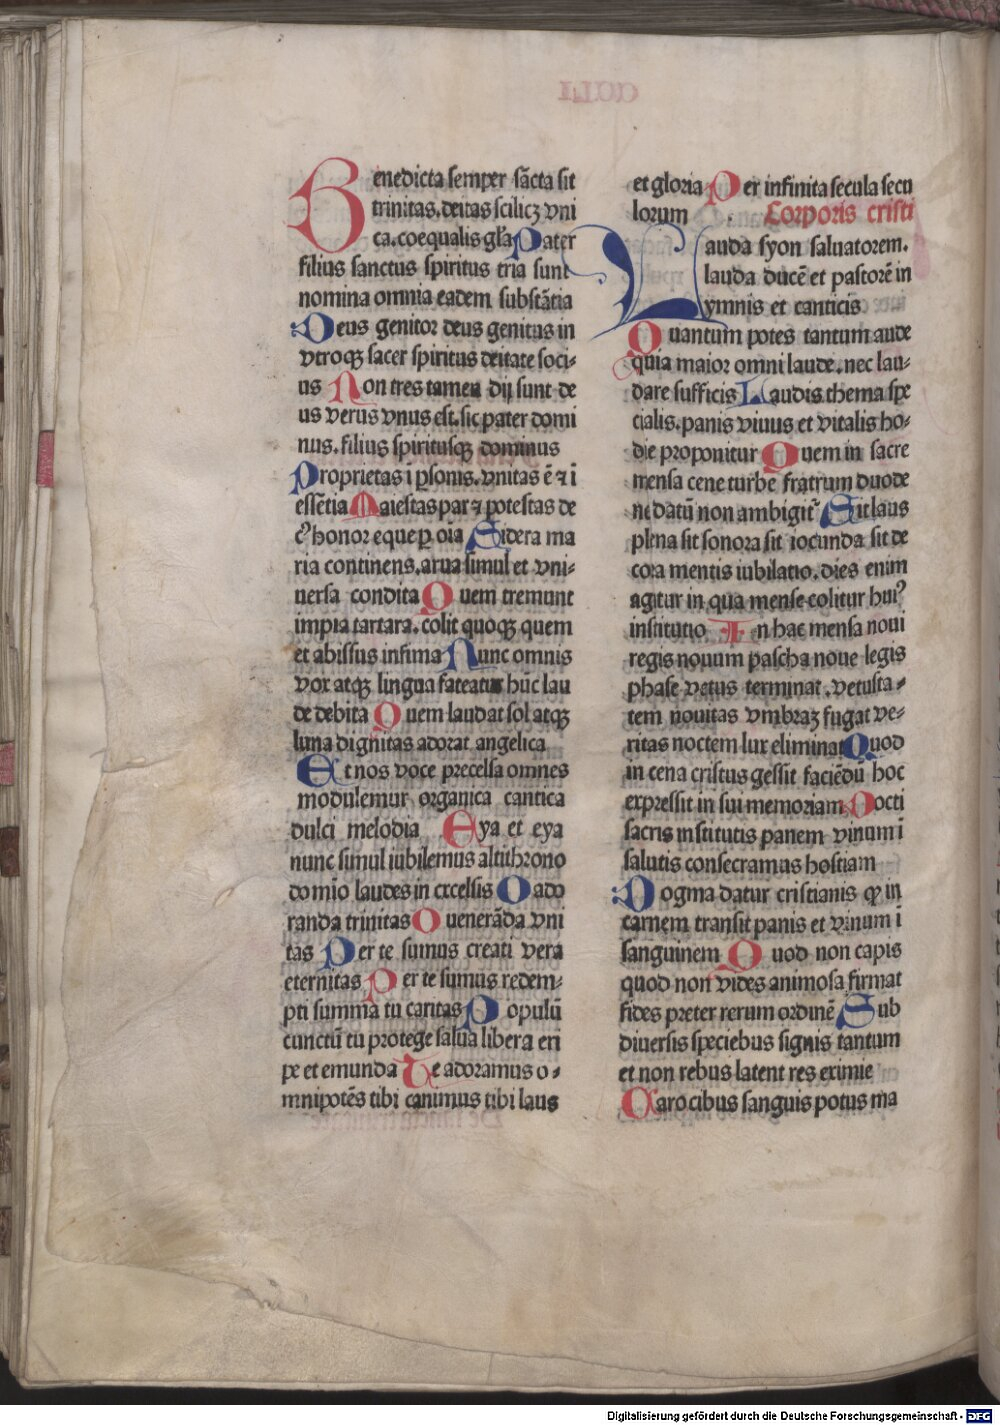 Benedicta semper sc̄ta sit
trinitas. deitas scilicꝫ vni
ca. coequalis gl̄a Pater
filius sanctus spiritus tria sunt
nomina omnia eadem substātia
Deus genitor deus genitus in
vtroqꝫ sacer spiritus deitate soci-
us Non tres tamen dij sunt de
us verus vnus est. sic pater domi
nus. filius spiritusqꝫ dominus
Proprietas ī ꝑsonis. vnitas ē ⁊ ī
essētia Maiestas par ⁊ potestas de
cꝰ honor eque ꝑ oīa Sidera ma
ria continens. arua simul et vni-
uersa condita Quem tremunt
impia tartara. colit quoqꝫ quem
et abissus infima Nunc omnis
vox atqꝫ lingua fateatur hūc lau
de debita Quem laudat sol atqꝫ
luna dignitas adorat angelica
Et nos voce precelsa omnes
modulemur organica cantica
dulci melodia Eya et eya
nunc simul iubilemus altithrono
domīo laudes in excelsis O ado
randa trinitas O venerāda vni
tas Per te sumus creati vera
eternitas Per te sumus redem-
pti summa tu caritas Populū
cunctū tu protege salua libera eri
pe et emunda Te adoramus o-
mnipotēs tibi canimus tibi laus
et gloria Per infinita secula secu
lorum. Corporis cristi
Lauda syon saluatorem.
lauda ducē et pastorē in
ymnis et canticis
Quantum potes tantum aude
quia maior omni laude. nec lau-
dare sufficis Laudis thema spe
cialis. panis viuus et vitalis ho-
die proponitur Quem in sacre
mensa cene turbe fratrum duode
ne datū non ambigit᷑ Sit laus
plena sit sonora sit iocunda sit de
cora mentis iubilatio. dies enim
agitur in qua mense colitur huiꝰ
institutio In hac mensa noui
regis nouum pascha noue legis
phase vetus terminat. vetusta-
tem nouitas vmbraꝫ fugat ve-
ritas noctem lux eliminat Quod
in cena cristus gessit faciēdū hoc
expressit in sui memoriam Docti
sacris institutis panem vinum ī
salutis consecramus hostiam
Dogma datur cristianis ꝙ in
carnem transit panis et vinum ī
sanguinem Quod non capis
quod non vides animosa firmat
fides preter rerum ordinē Sub
diuersis speciebus signis tantum
et non rebus latent res eximie
Caro cibus sanguis potus ma
Digitalisierung gefördert durch die Deutsche Forschungsgemeinschaft - DFG